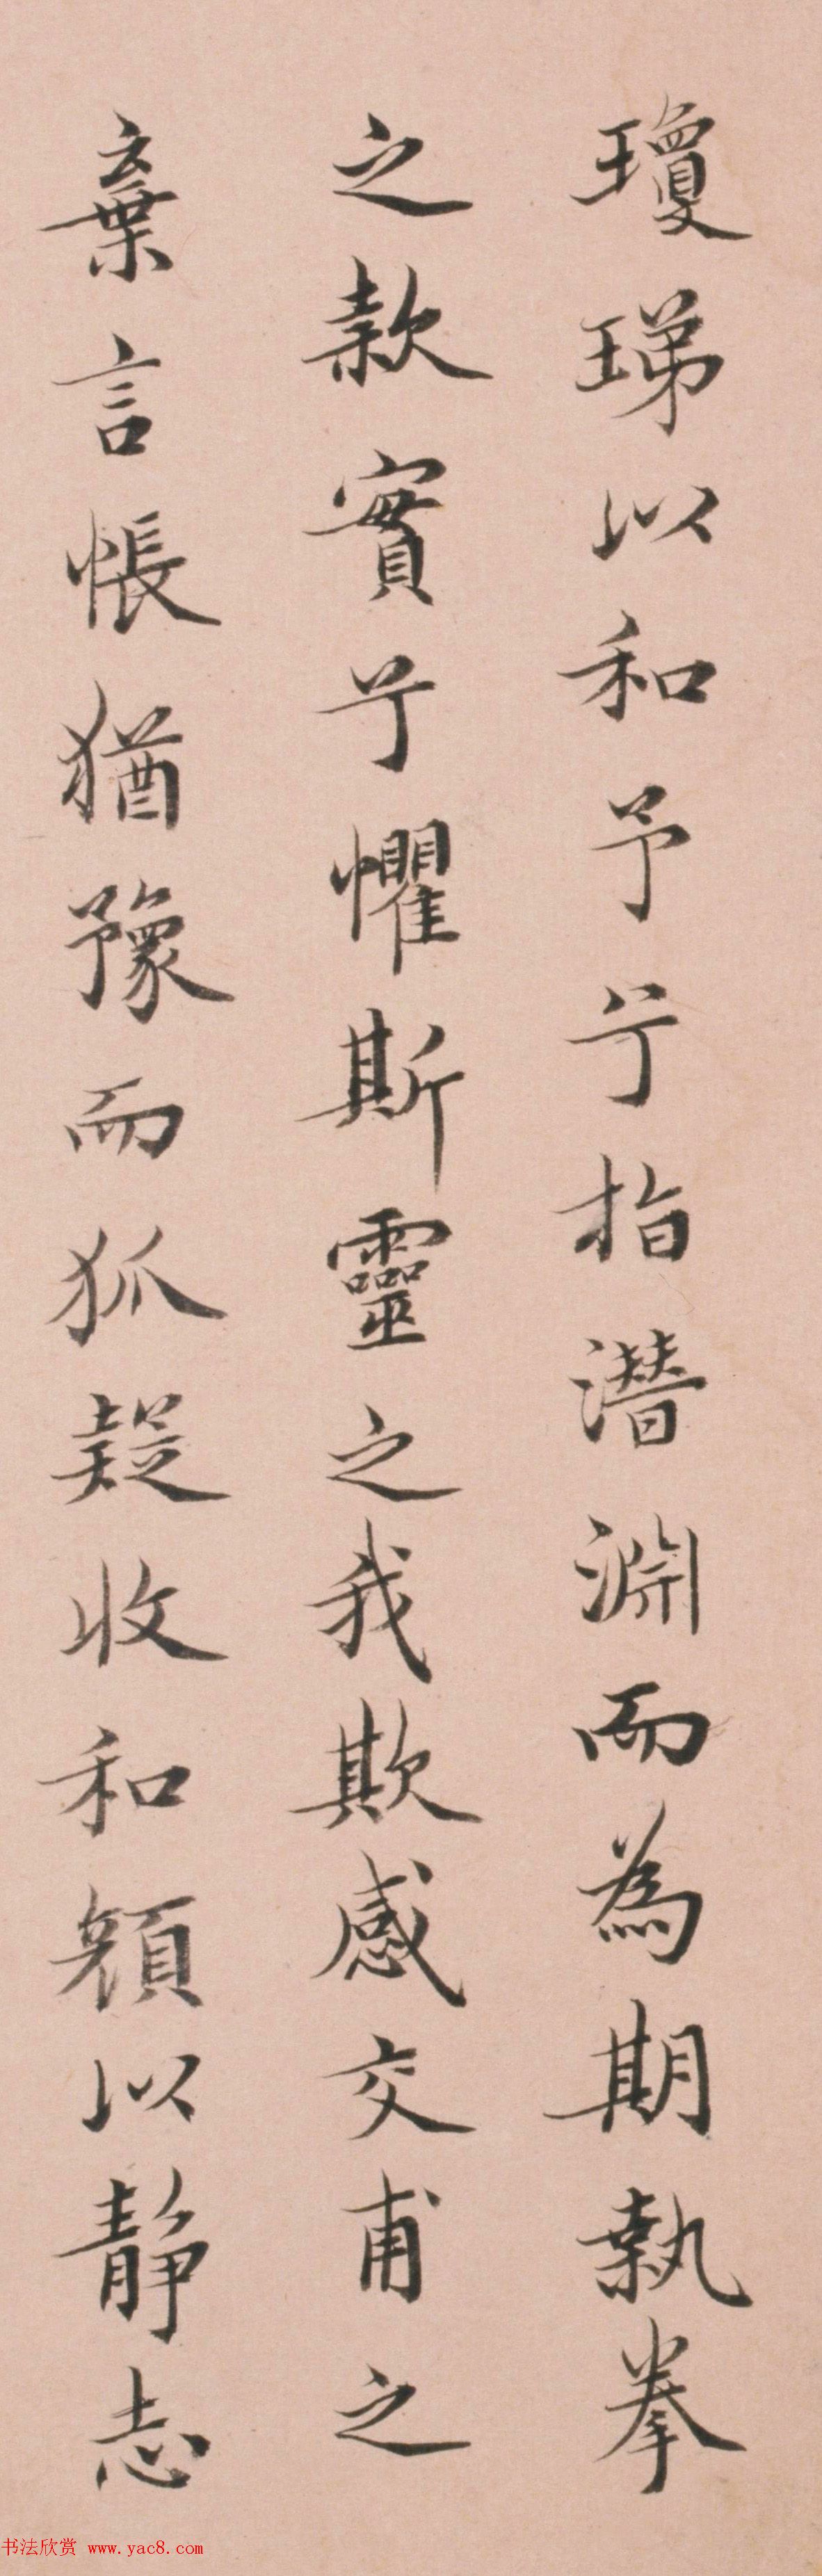 瓊珶以和予兮指潛淵而為期執拳
之款實兮懼斯靈之我欺感交甫之
棄言悵猶豫而狐疑收和顏以靜志
书法欣赏 www.yac8.com